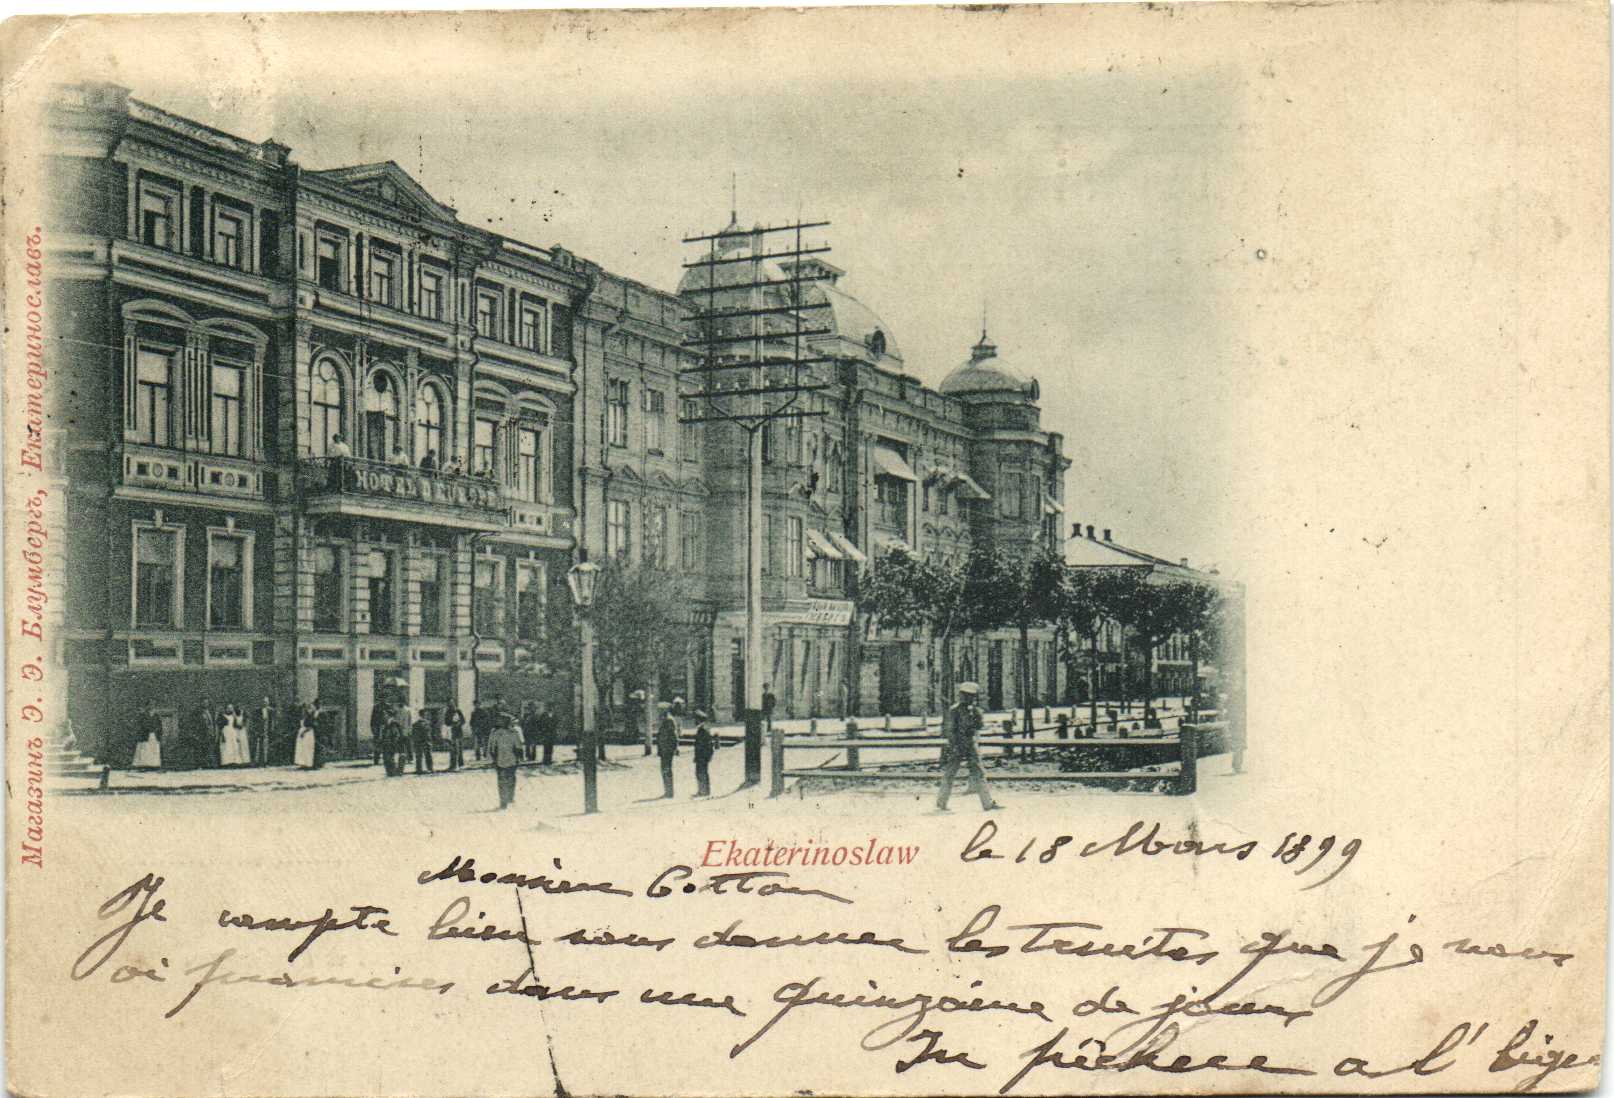 Магазинъ Э. Э. Блумбергъ, Екатеринославъ.
HOTEL D'EUROPE
Ekaterinoslaw
le 18 Mars 1899
Monsieur Cotton
Je compte bien vous donner les truites que je vous
ai promises dans une quinzaine de jours
Un pêcheur a l'